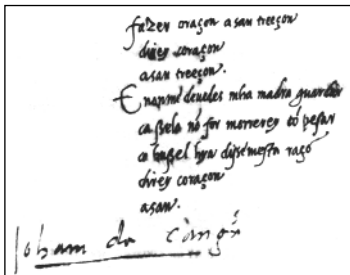 fazer coraçon a san treeçon
direy coraçon
a san treeçon.
E nonmi deuedes mha madre guardar
ca se la nō for morrerey cō pesar
ca hussel hya disemesta razō
direy coraçon
a san.
Joham de cangas